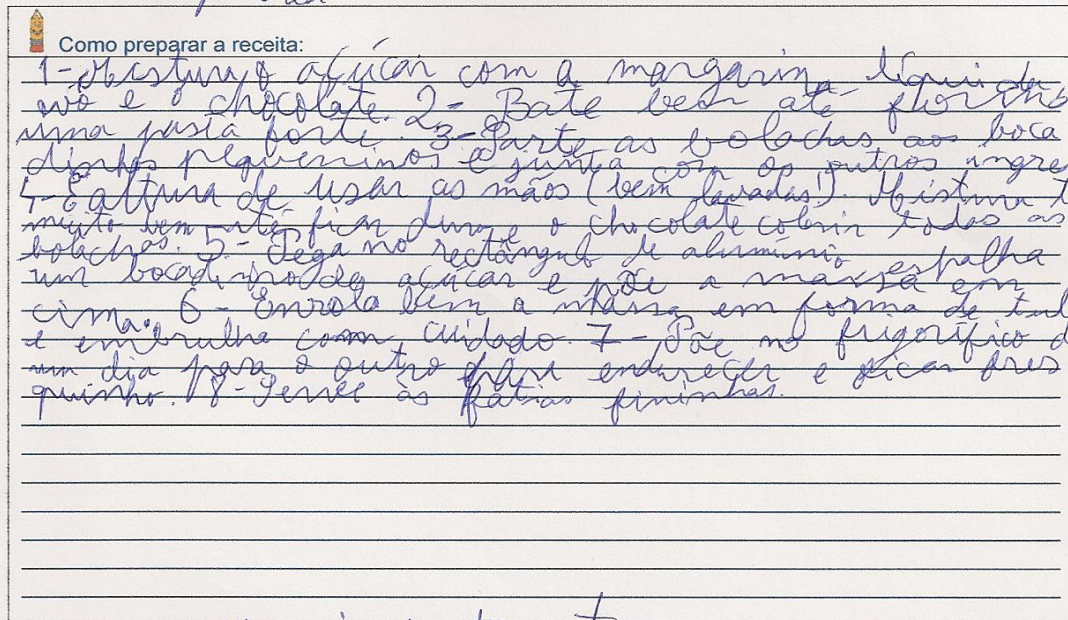 Como preparar a receita:
1-Mistura o açúcar com a margarina líquida
ovo e o chocolate. 2- Bate bem até
uma pasta forte. 3-Parte as bolachas aos boca
dinhos pequeninos e junta com os outros ingre
4-É altura de usar as mãos (bem lavadas!). Mistura t
muito bem até ficar duro e o chocolate cobrir todas as
bolachas. 5- Pega no rectângulo de alumínio, espalha
um bocadinho de açúcar e põe a massa em
cima. 6- Enrola bem a massa em forma de
e embrulha com cuidado. 7- Põe no frigorífico d
um dia para o outro para endurecer e ficar fres
quinho. 8-Serve às fatias fininhas.